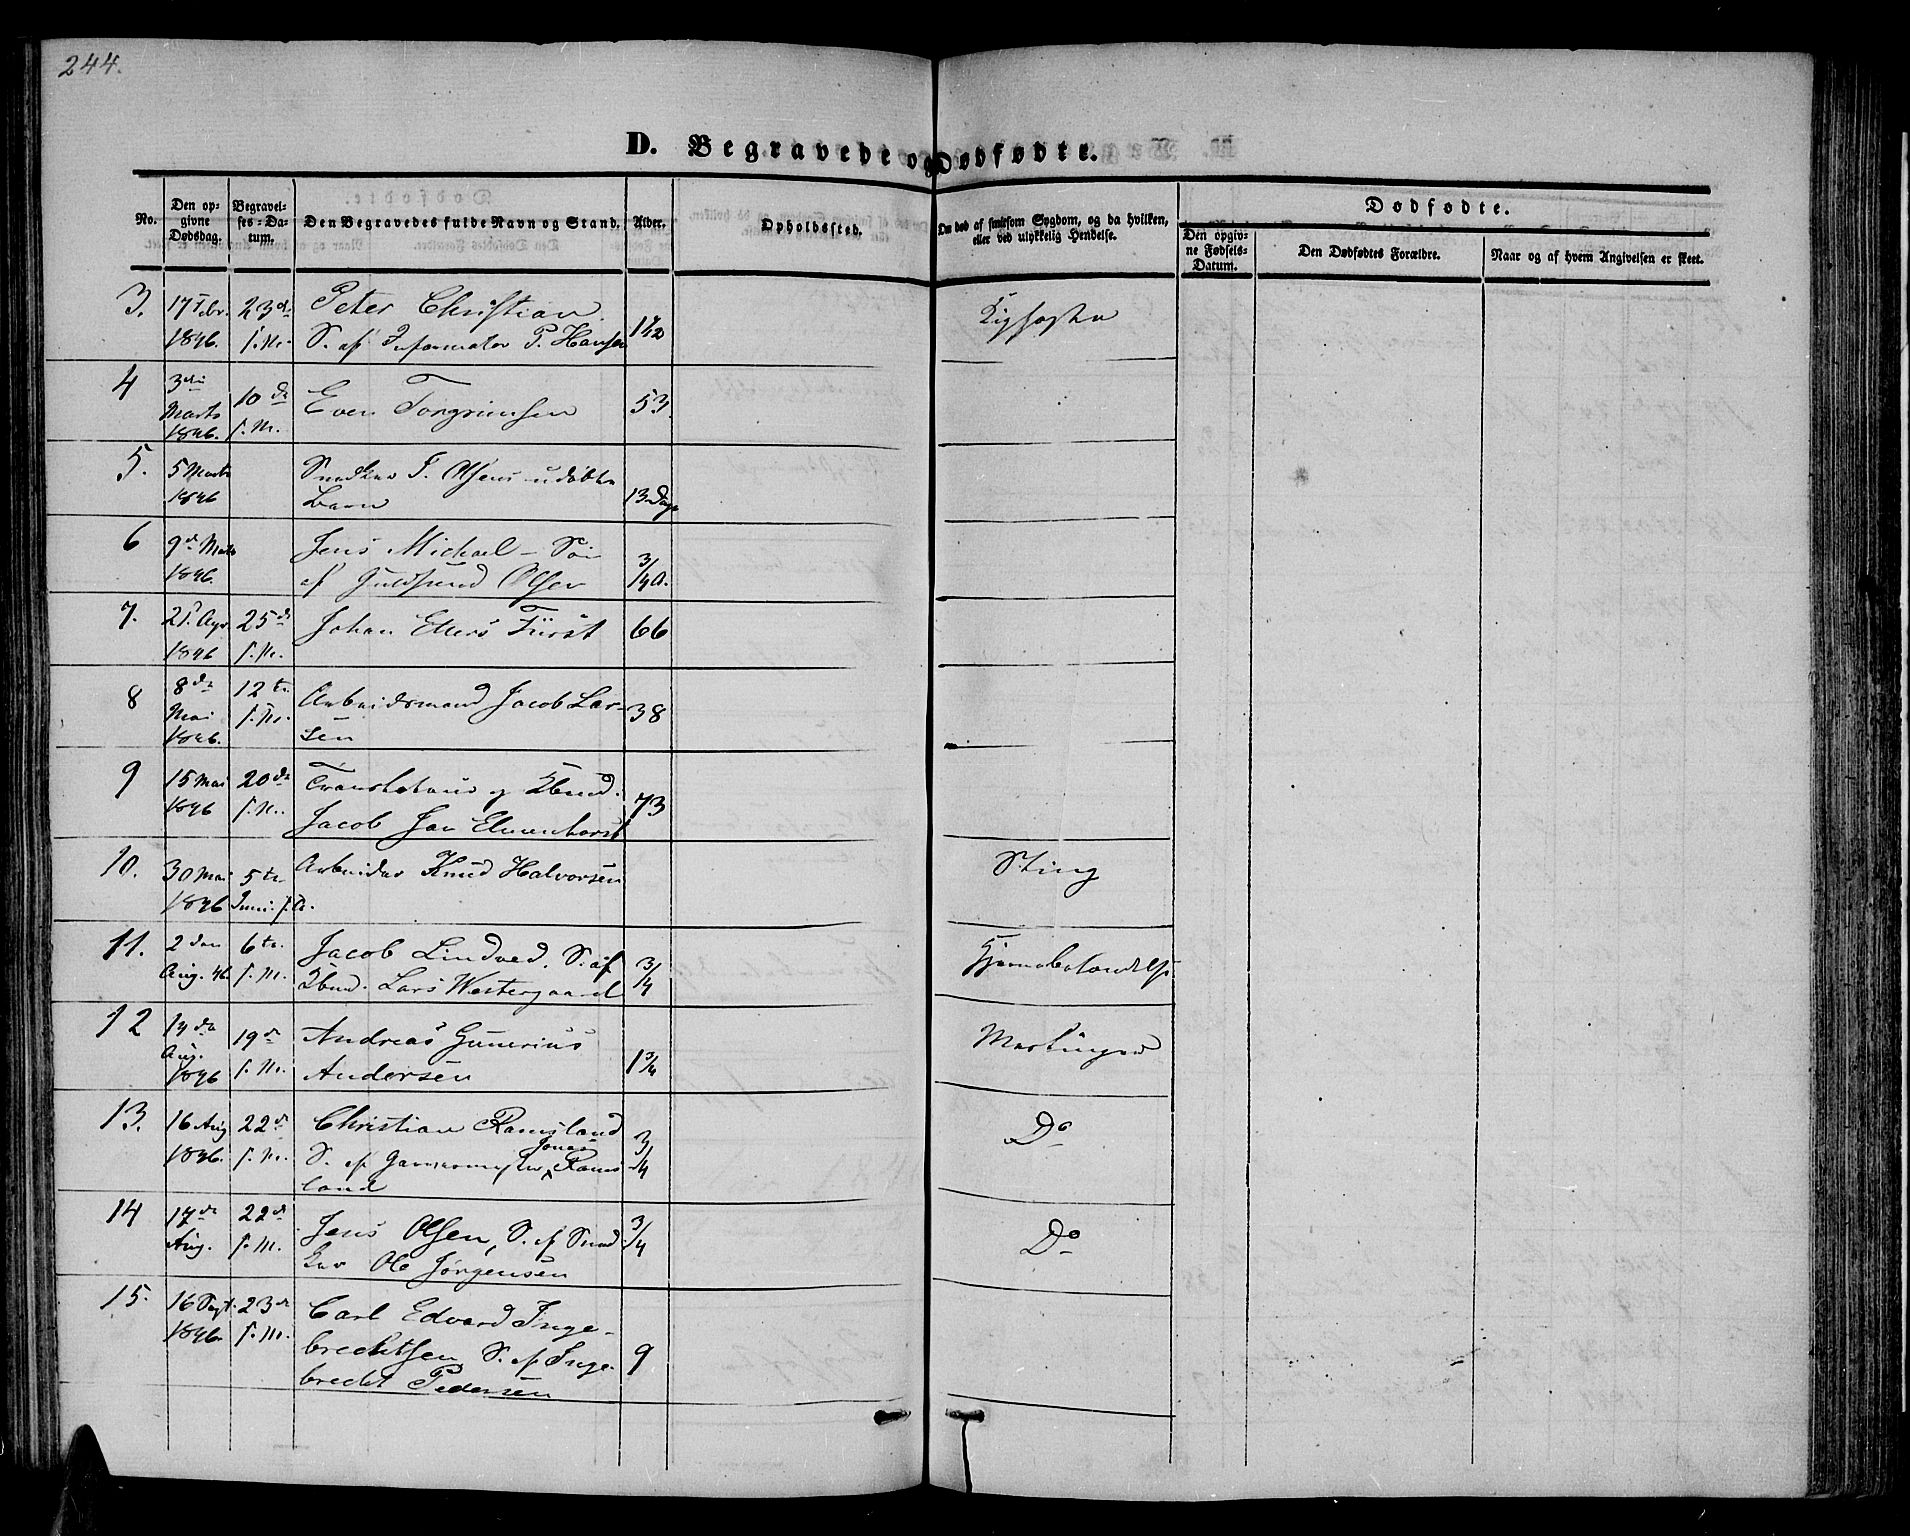 244.
D. Begravede og Dødfødte.
No.
Den opgivne Dødsdag.
Begravelses-Datum.
Den Begravedes fulde Navn og Stand.
Alder.
Opholdssted.
Om død af smitsom Sygdom, og da hvilken, eller ved ulykkelig Hendelse.
Dødfødte.
Den opgivne Fødsels-Datum.
Den Dødfødtes Forældre.
Naar og af hvem Angivelsen er skeet.
3. 17 Febr. 23d Peter Christian
1846. S. af Informator P. Hansen Kighoste
4 3die 10de
Marts Even Torgrimsen 53
1846.
5. 5 Marts Snedker T. Olsens udøbte
1846 Barn 13 Dage
6 9d Marts Jens Michael - Søn 3/4 A.
1846. af Guldsmed Olsen
7. 21. Apr 25d Johan Ehlers Fürst 66
1846
8 8de 12te Arbeidsmand Jacob Lar- 38
Mai
1846. sen
9 15 Mai 20de Translateur og Kbmd. 73
1846 Jacob Jan Elmenhorst
10. 30 Mai 5te Arbeider Knud Halvorsen Sting
1846 Juni
11. 2den 6te Jacob Lindved. S. af 3/4
Aug. 46. Kbmd. Lars Westergaard
12 14de 19de Andreas Gunerius 1 3/4
Aug.
1846 Andersen
13. 16 Aug 22d Christian Ramsland 3/4 Do
1846. S. af Garvermester Jonas Rams
land
14 17de 22de Jens Olsen, S. af Sned 3/4 Do
Aug. ker Ole Jørgensen
15. 16 Sept. 23de Carl Edvard Inge-
1846. brechtsen S. af Inge- 9
brecht Pedersen